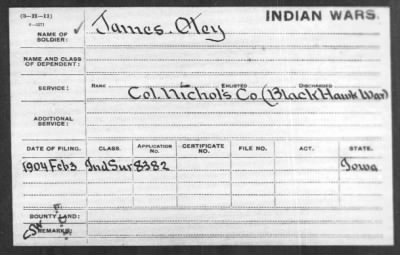 (3-XX-11)
INDIAN WARS.
NAME OF SOLDIER: James Otey
NAME AND CLASS OF DEPENDENT:
SERVICE: RANK ENLISTED DISCHARGED
Col. Nichols Co. (Black Hawk War)
ADDITIONAL SERVICE:
DATE OF FILING. CLASS. APPLICATION NO. CERTIFICATE NO. FILE NO. ACT. STATE.
1904 Feb 3 Ind Sur 8382 Iowa
BOUNTY LAND:
REMARKS: